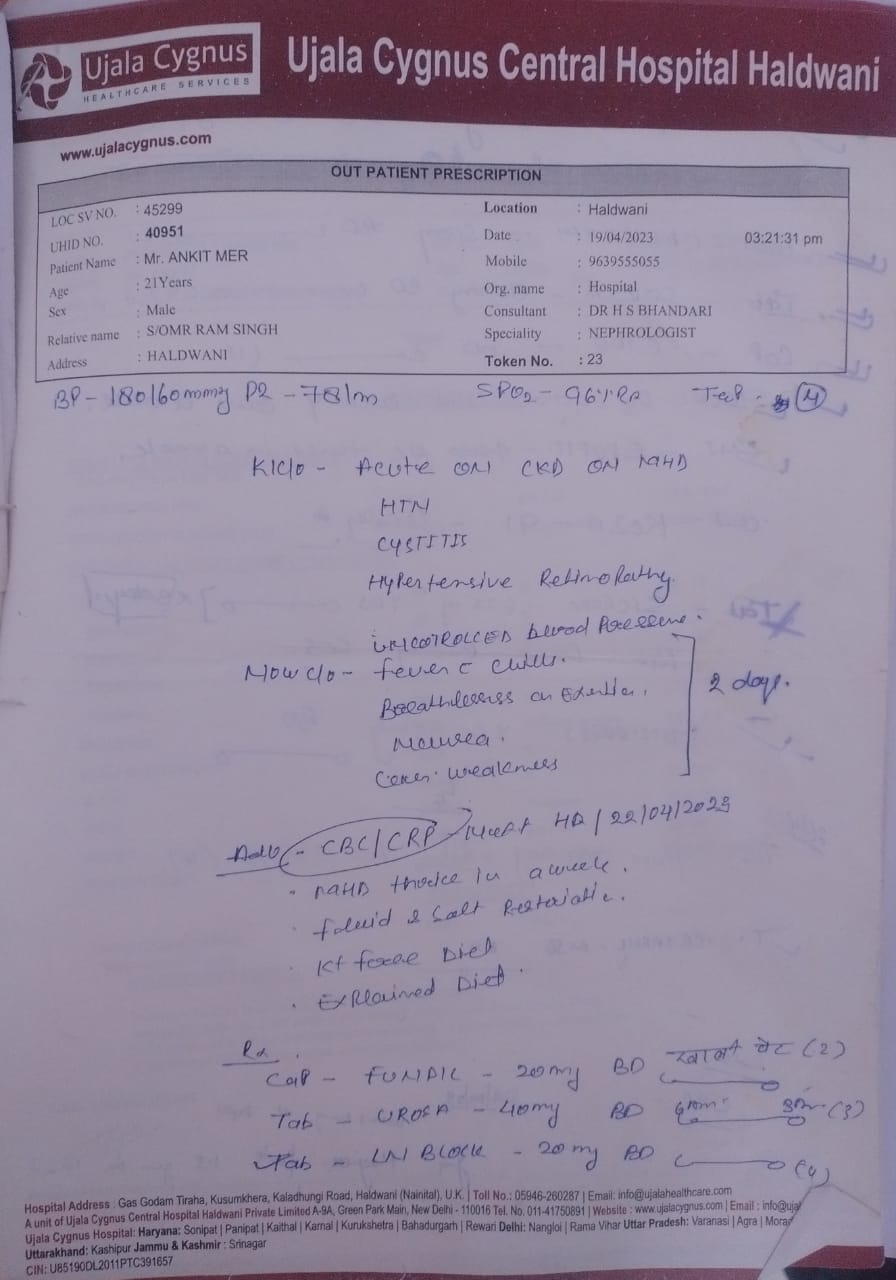 Ujala Cygnus
HEALTHCARE SERVICES
Ujala Cygnus Central Hospital Haldwani
www.ujalacygnus.com
OUT PATIENT PRESCRIPTION
LOC SV NO. : 45299 Location : Haldwani
UHID NO. : 40951 Date : 19/04/2023 03:21:31 pm
Patient Name : Mr. ANKIT MER Mobile : 9639555055
Age : 21Years Org. name : Hospital
Sex : Male Consultant : DR H S BHANDARI
Relative name : S/OMR RAM SINGH Speciality : NEPHROLOGIST
Address : HALDWANI Token No. : 23
BP - 180/60mmHg PR - 78/m SPO2 - 96%RA
K/C/O - Acute ON CKD ON MHD
HTN
CYSTITIS
Hypertensive Retinopathy.
UNCONTROLLED blood Pressure.
Now c/o - fever c chills.
Breathlessness on Exertion. 2 days.
Nausea.
Gen. weakness
Adv - CBC/CRP Next HD/22/04/2023
• MHD thrice in a week.
• fluid & Salt Restriction.
• K+ free Diet
• Explained Diet.
Rx.
Cap - FUNDIC - 20mg BD खाली पेट (2)
Tab - - 40mg BD (3)
Tab - LN BLOCK - 20mg BD (4)
Hospital Address : Gas Godam Tiraha, Kusumkhera, Kaladhungi Road, Haldwani (Nainital), U.K. | Toll No.: 05946-260287 | Email: info@ujalahealthcare.com
A unit of Ujala Cygnus Central Hospital Haldwani Private Limited A-9A, Green Park Main, New Delhi - 110016 Tel. No. 011-41750891 | Website : www.ujalacygnus.com | Email : info@ujal
Ujala Cygnus Hospital: Haryana: Sonipat | Panipat | Kaithal | Karnal | Kurukshetra | Bahadurgarh | Rewari Delhi: Nangloi | Rama Vihar Uttar Pradesh: Varanasi | Agra | Morad
Uttarakhand: Kashipur Jammu & Kashmir : Srinagar
CIN: U85190DL2011PTC391657